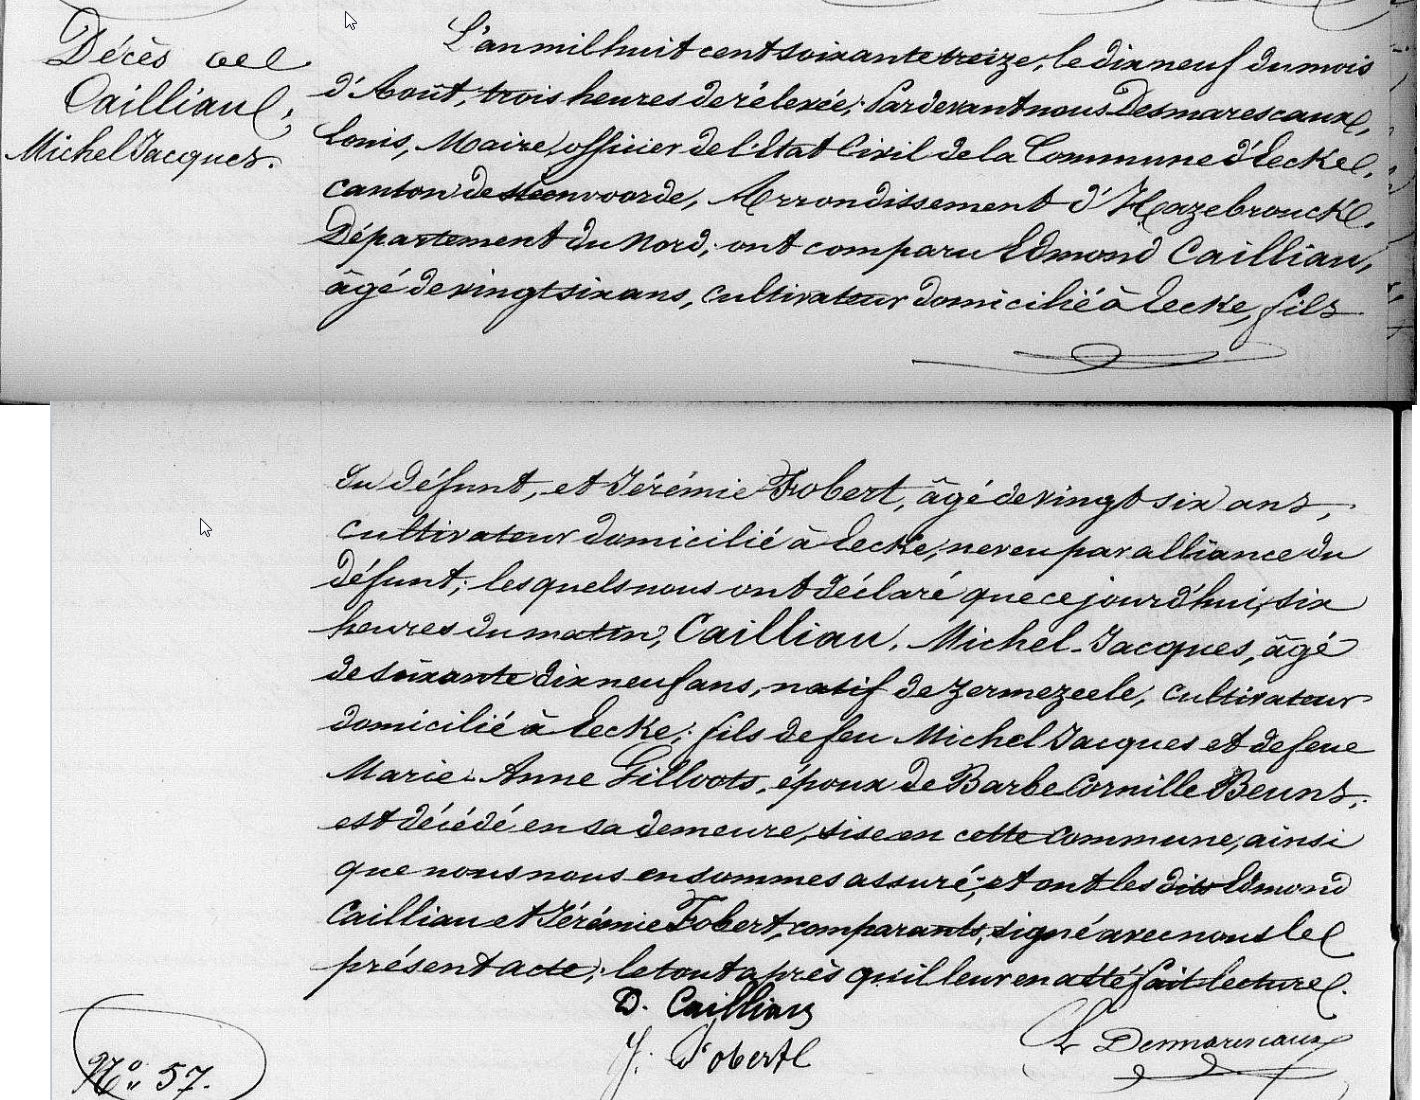 Décès de
Cailliau,
Michel Jacques.
L'an mil huit cent soixante treize, le dix neuf du mois
d'Août, trois heures de rélevée; Pardevant nous Desmarescaux,
Louis, Maire, officier de l'Etat Civil de la Commune d'Eecke,
canton de Steenvoorde, Arrondissement d'Hazebrouck,
Département du Nord; ont comparu Edmond Cailliau,
âgé de vingt six ans, cultivateur domicilié à Eecke, fils
du défunt, et Jérémie Fobert, âgé de vingt six ans,
cultivateur domicilié à Eecke, neveu par alliance du
défunt; lesquels nous ont déclaré que ce jourd'hui, six
heures du matin, Cailliau, Michel-Jacques, âgé
de soixante dix neuf ans, natif de Zermezeele, cultivateur
domicilié à Eecke; fils de feu Michel Jacques et de feue
Marie-Anne Gilloots, époux de Barbe Cornille Beuns,
est décédé en sa demeure, sise en cette commune, ainsi
que nous nous en sommes assuré; et ont les dits Edmond
Cailliau et Jérémie Fobert, comparants, signé avec nous le
présent acte; le tout après qu'il leur en a été fait lecture.
D. Cailliau
J. Fobert
L Desmarescaux
No. 57.